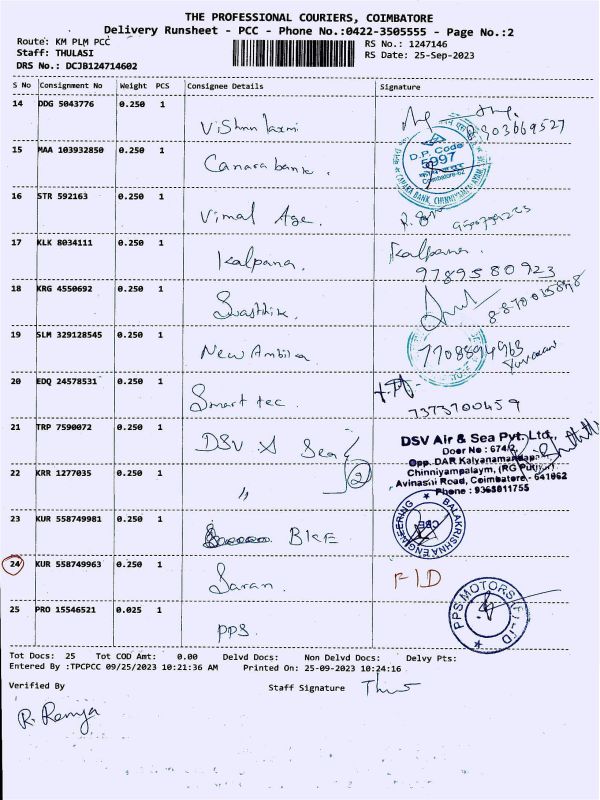 THE PROFESSIONAL COURIERS, COIMBATORE
Delivery Runsheet - PCC - Phone No.:0422-3505555 - Page No.:2
Route: KM PLM PCC
Staff: THULASI
DRS No.: DCJB124714602
RS No.: 1247146
RS Date: 25-Sep-2023
S No Consignment No Weight PCS Consignee Details Signature
14 DDG 5043776 0.250 1 Vishnu laxmi
15 MAA 103932850 0.250 1 Canara bank.
D.P. Code
5997
Coimbatore-62
16 STR 592163 0.250 1 Vimal Age.
17 KLK 8034111 0.250 1 Kalpana. Kalpana.
9789580923
18 KRG 4550692 0.250 1 Swasthik.
19 SLM 329128545 0.250 1 New Ambika 7708894963
Yuvaraan
20 EDQ 24578531 0.250 1 Smart tec.
7373700459
21 TRP 7590072 0.250 1 DSV A Sea
DSV Air & Sea Pvt. Ltd.,
Door No : 674/2,
Opp. DAR Kalyanamandapam
Chinniyampalaym, (RG Pudur)
Avinashi Road, Coimbatore - 641062
Phone : 9365011755
22 KRR 1277035 0.250 1 〃 2
23 KUR 558749981 0.250 1 BKE
BALAKRISHNA ENGINEERING
CBE
24 KUR 558749963 0.250 1 Saran FID
25 PRO 15546521 0.025 1 PPS.
PPS MOTORS (P) LTD
Tot Docs: 25 Tot COD Amt: 0.00 Delvd Docs: Non Delvd Docs: Delvy Pts:
Entered By :TPCPCC 09/25/2023 10:21:36 AM Printed On: 25-09-2023 10:24:16
Verified By
Staff Signature
R. Remja